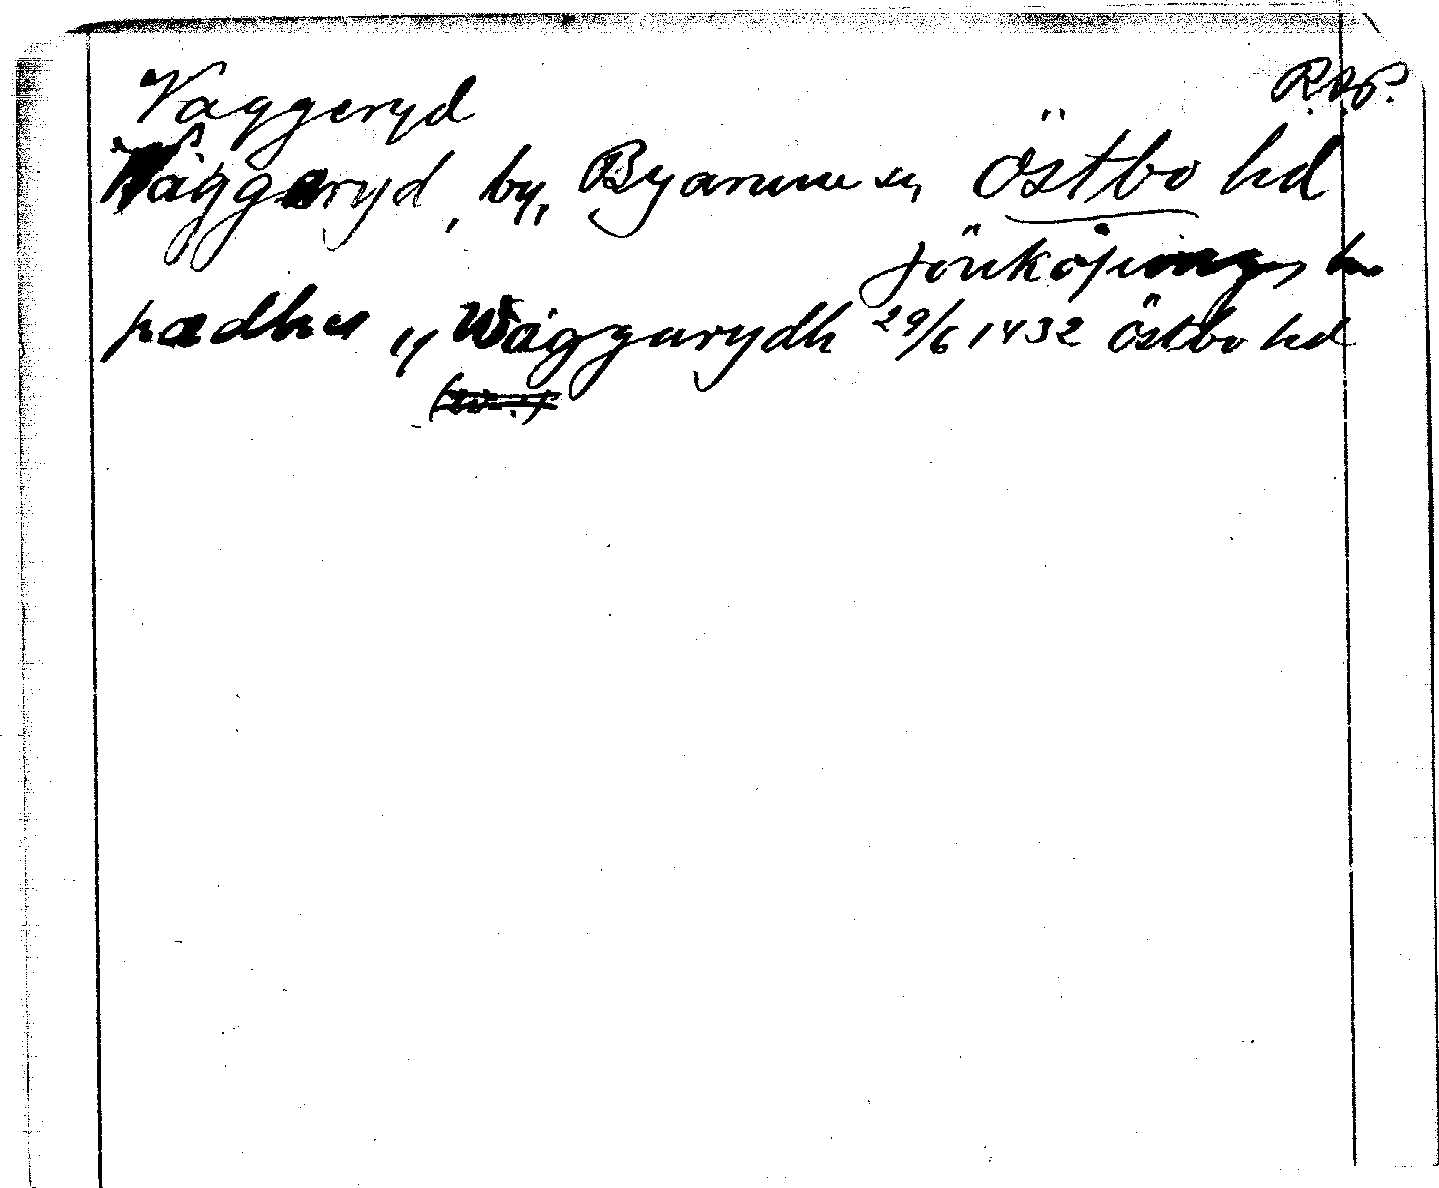 Vaggeryd R.A.P.
Waggeryd, by, Byarums sn, Östbo hd
Jönköpings län
pædher ij Waggarydh 29/6 1432 östbo hd